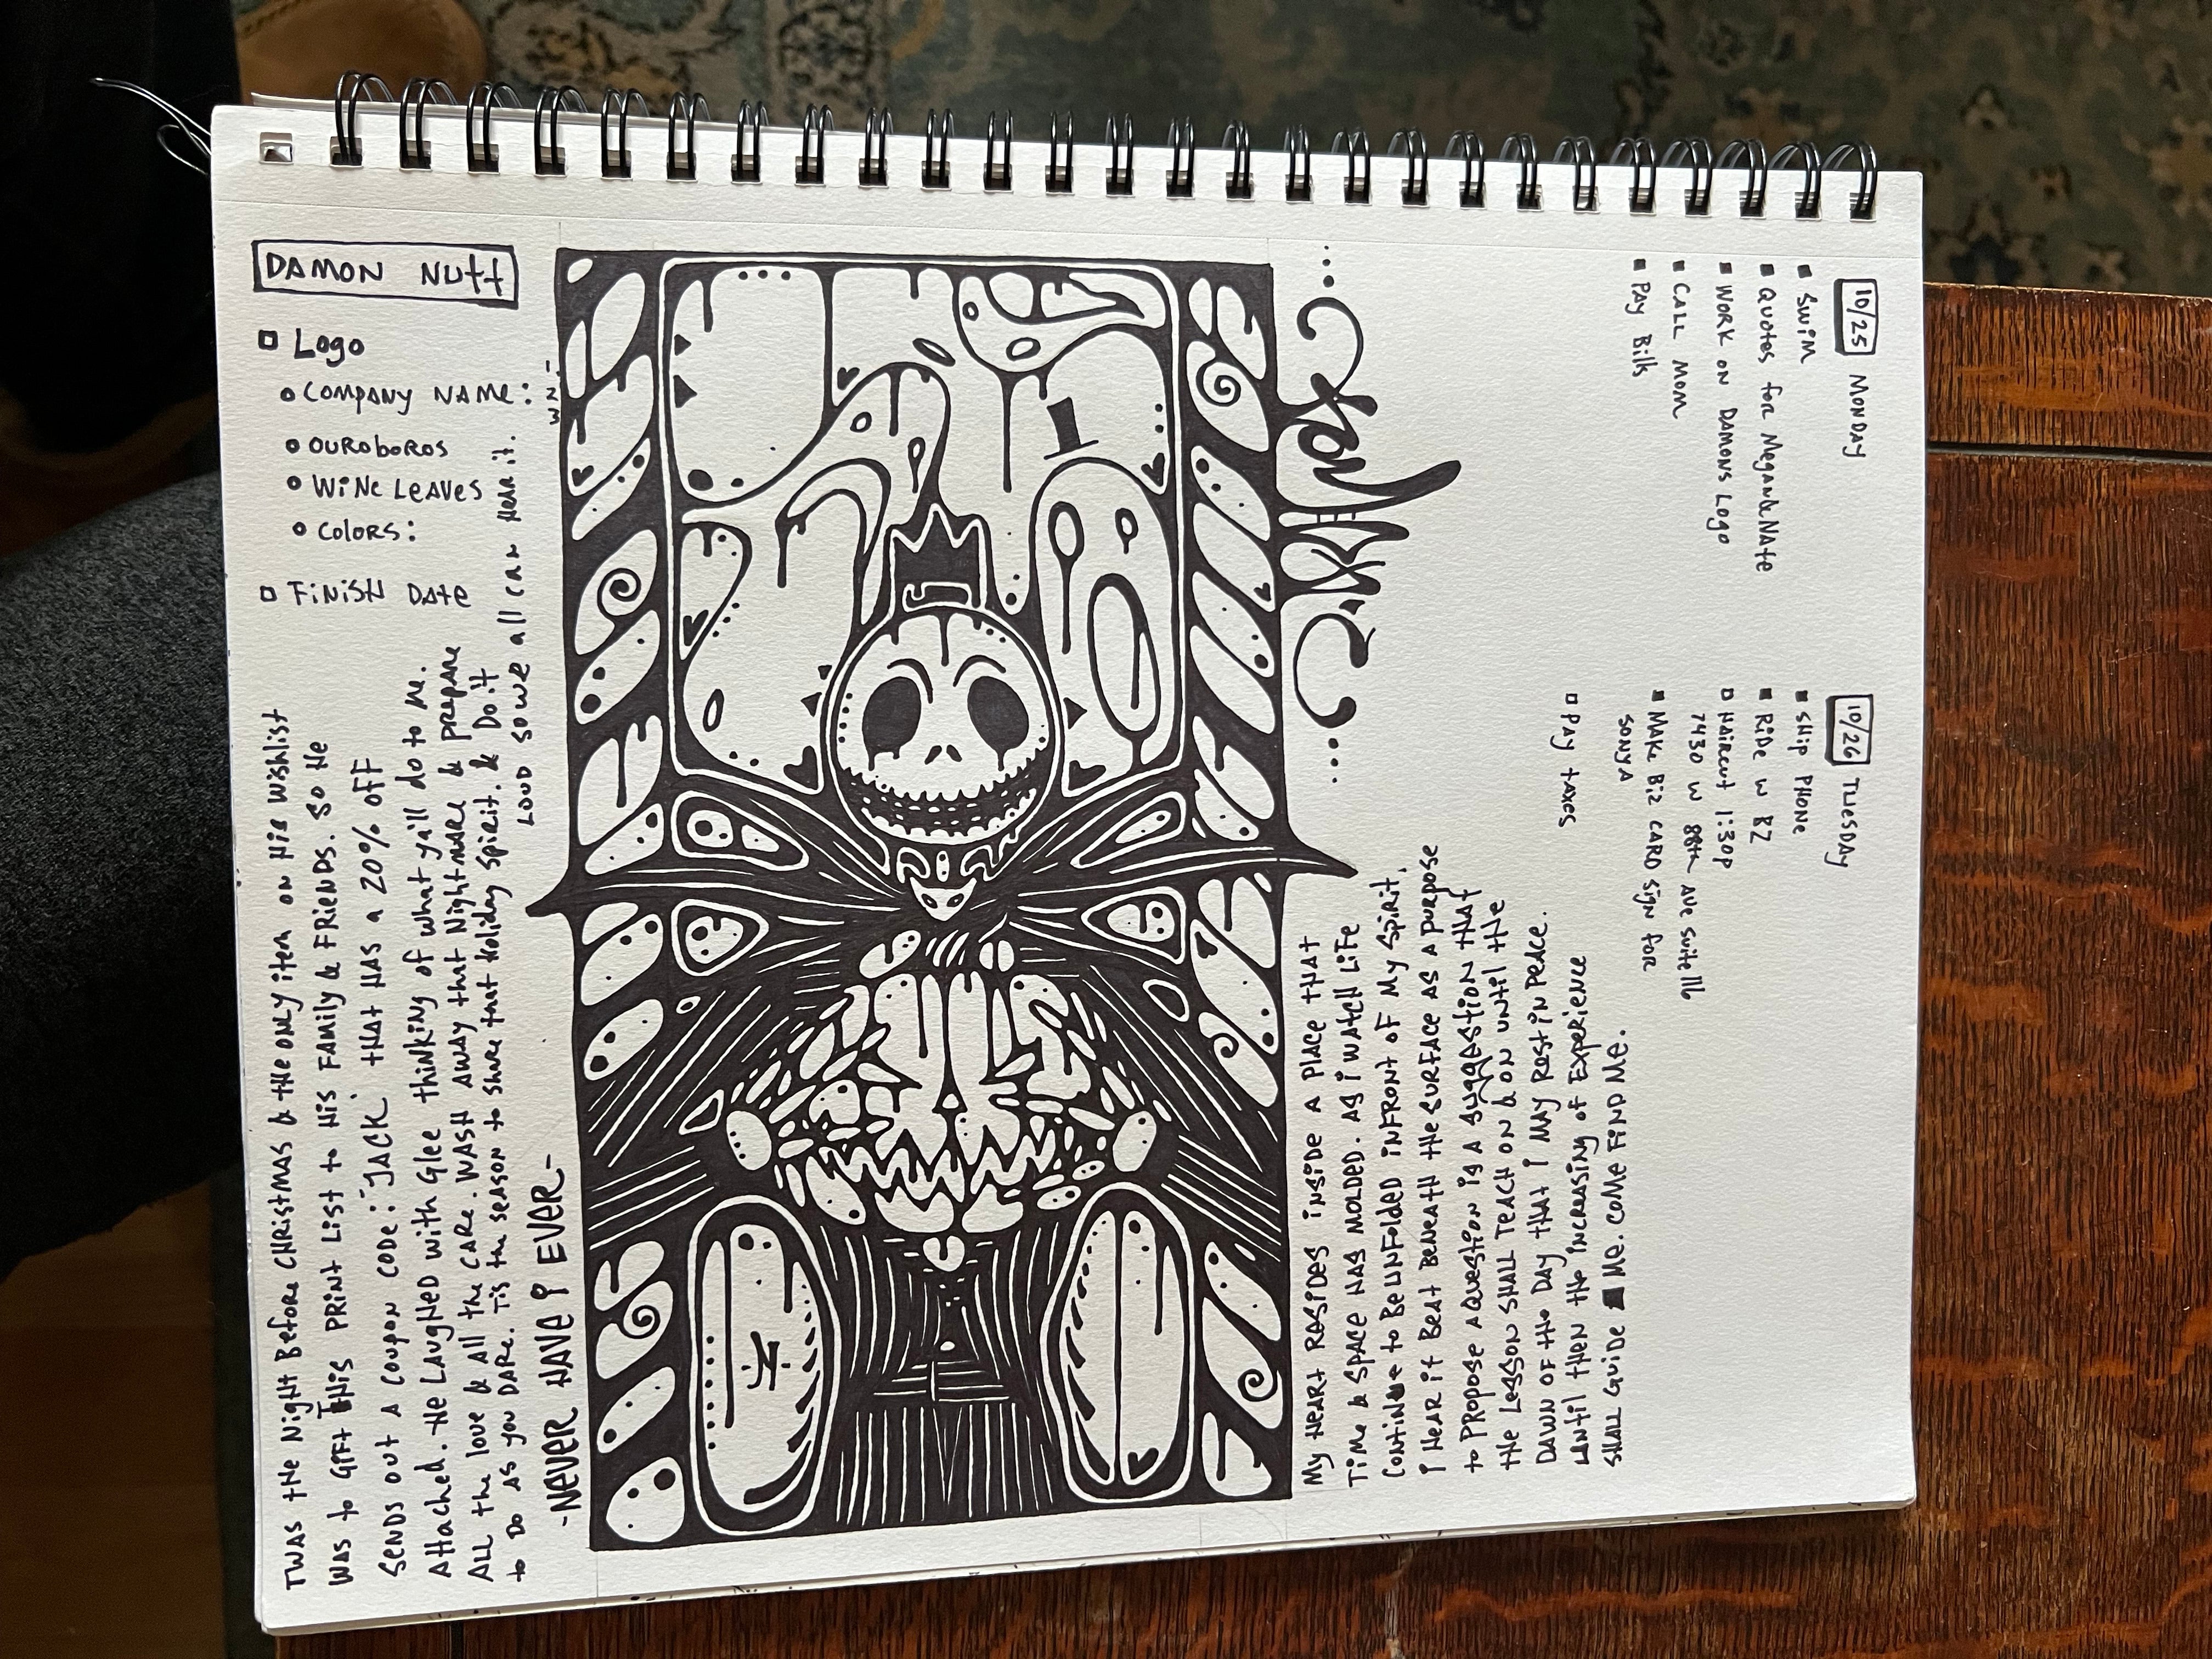 DAMON NUTT
Logo
COMPANY NAME: 1
2
3
OUROBOROS
WINE LEAVES
COLORS:
FINISH DATE
TWAS the Night Before CHRISTMAS & the ONLY item on His Wishlist
WAS to GIFT THIS PRINT LIST to His FAMILY & FRIENDS. SO He
SENDS OUT A COUPON CODE: "JACK" that HAS a 20% OFF
Attached. He LAUGHED with Glee thinking of what ya'll do to me.
ALL the love & All the CARE. WASH AWAY that Nightmare & PREPARE
to DO as you DARE. Tis the season to share that Holiday Spirit. & Do it
LOUD SO WE all can Hear it.
-NEVER HAVE I EVER-
MY HEART RESIDES INSIDE A PLACE THAT
TIME & SPACE HAS MOLDED. AS I WATCH LIFE
CONTINUE to BE UNFOLDED INFRONT OF MY SPIRIT,
I HEAR IT BEAT BENEATH the SURFACE AS A PURPOSE
to PROPOSE A QUESTION IS A SUGGESTION THAT
the LESSON SHALL TEACH ON & ON UNTIL the
DAWN OF the DAY THAT I MAY REST IN PEACE.
UNTIL THEN the INCREASING OF EXPERIENCE
SHALL GUIDE ME. COME FIND ME.
10/25 MONDAY
SWIM
QUOTES for Megan & Nate
WORK ON DAMONS Logo
CALL MOM
PAY Bills
10/26 TUESDAY
SHIP PHONE
RIDE W BZ
HAIRCUT 1:30P
7430 W 88th AVE SUITE 116
MAKE BIZ CARD SIGN FOR
SONYA
PAY TAXES